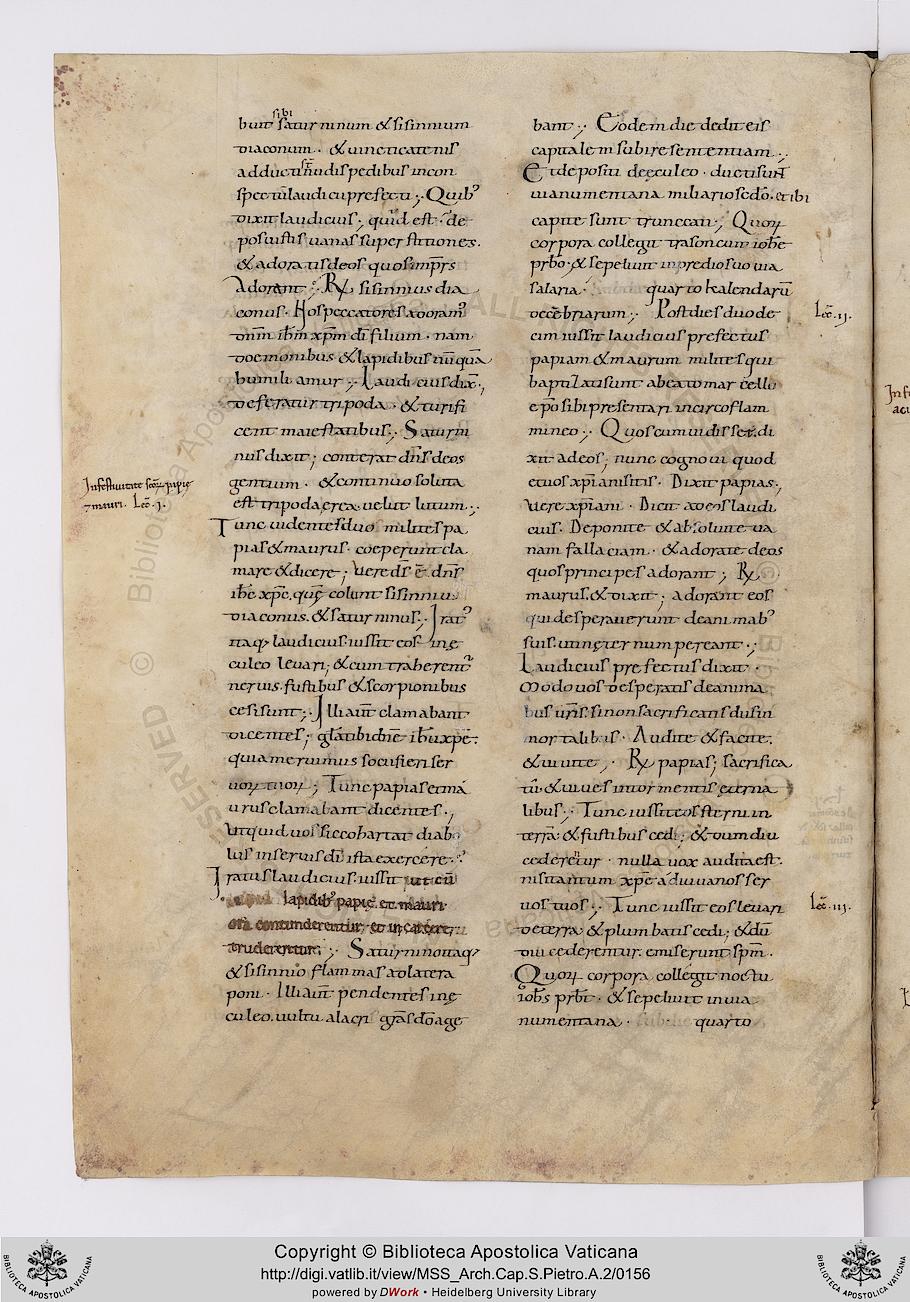 sibi
buit saturninum &sisinnium
diaconum · & uincticatenis
adducti sunt nudispedibus incon
spectulaudiciiprefecti ;, Quib;
dixitlaudicius; quid est · de
posuistis uanas superstitiones.
& adoratisdeos quosimprs
Adorant ; R, sisinnius dia
conus. Hospeccatores adoram;
dnm ihm xpm di filium · nam
doemonibus & lapidibus nuquā
humiliamur ;, Laudicius dix;,
deferatur tripoda · & turifi
cent maiestatibus ;, Saturni
nus dixit; conterat dns deos
gentium · & continuo soluta
est tripoda erea uelut lutum ;.
Tunc uidentesduo militespa
pias&maurus · coeperuntcla
mare &dicere; Vere ds ē dns
ihs xpe. quę colunt sisinniu
diaconus. & saturninus ;, Irat;
itaq; laudicius · iussit eos inę
culeo leuari; & cum traherent
neruis. fustibus &scorpionibus
cesisunt ;, Illi aut clamabant
dicentes; glatibidne ihuxpe.
quiameruimus sociifieriser
uorum tuorum ; Tunc papias etma
urusclamabant dicentes ;
Utquid uos siccohartat diabo
lus inseruis di ista exercere ·
Iratuslaudicius · iussit ut cū
lapidib; papię et mauri
ora contunderentur. et in carcere
truderentur. ;, Saturninoitaq;
& sisinnio flammas adlatera
poni · Illi aut pendentes inę
culeo. uultu alacri gras do age
Infestiuitate scorum papię
& mauri. Lec. I.
bant ;, Eodem die dedit eis
capitalem subiresententiam ;.
Et depositi deęculeo · ductisunt
uianumentana miliariosedo · et ibi
capite sunt truncati ;, Quorum
corpora collegit trason cum iohe
prbo · & sepeliuit inprediosuo uia
salaria · quarto kalendarū
decēbriarum ;, Postdies duode
cim iussit laudicius prefectus
papiam & maurum milites qui
baptizatisunt abeatomarcello
epo sibi presentari incircoflam
mineo ;, Quoscumuidisset. di
xit adeos; nunc cognoui quod
etuos xpianisitis · Dixit papias;
Vere xpiani · Dicit adeos laudi
cius. Deponite & absoluite ua
nam fallaciam · & adorate deos
quosprincipes adorant ; R,
maurus. & dixit; adorant eos
quidesperauerunt deanimab;
suis. utinęternumpereant. ;
Laudicius prefectus dixit.
modo uos desperatis deanima
bus uris. si nonsacrificatis diisin
mortalibus · Audite &facite.
& uiuite ;, R papias; sacrifica
tu & uiues intormentis ęterna
libus ;, Tunc iussit eos sterniin
terra; & fustibus cedi; & dum diu
cederentur · nulla uox audita est.
nisi tantum xpe adiuuanos ser
uos tuos ;, Tunc iussit eos leuari
deterra & plumbatis cedi; & dū
diu cederentur. emiserunt spm.
Quorum corpora collegit noctu
iohs prbt · & sepeliuit inuia
numentana · quarto
Lec. II.
Lec. III.
Copyright © Biblioteca Apostolica Vaticana
http://digi.vatlib.it/view/MSS_Arch.Cap.S.Pietro.A.2/0156
powered by DWork • Heidelberg University Library
BIBLIOTECA APOSTOLICA VATICANA
BIBLIOTECA APOSTOLICA VATICANA